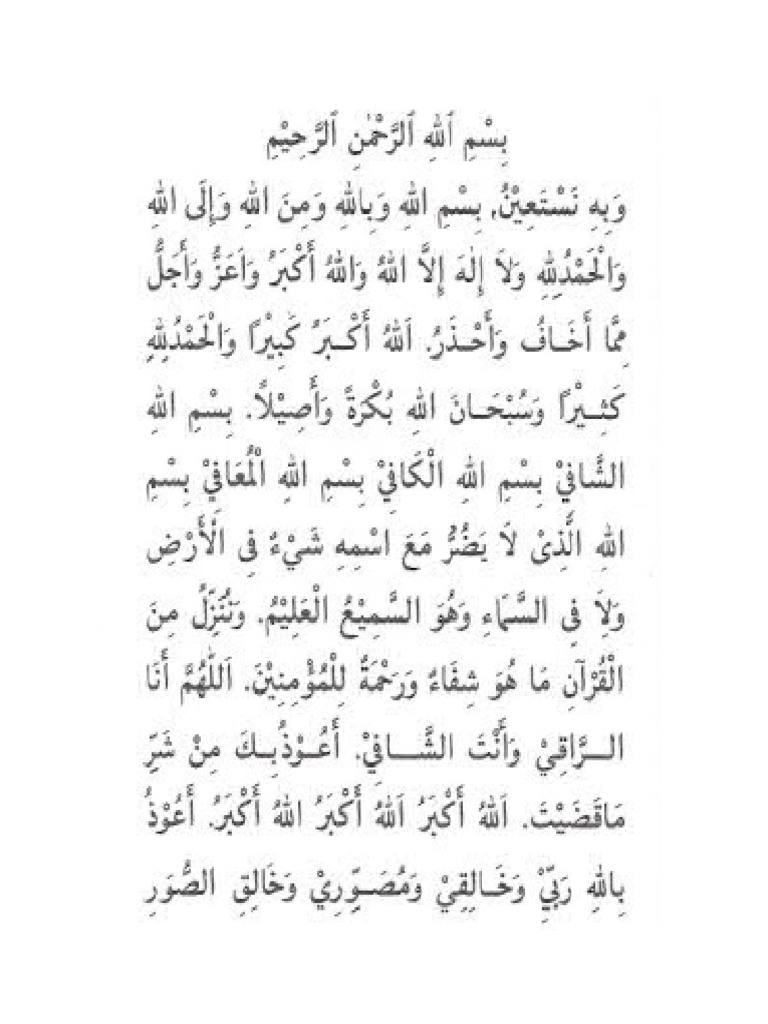 بِسْمِ ٱللهِ ٱلرَّحْمٰنِ ٱلرَّحِيْمِ
وَبِهِ نَسْتَعِيْنُ, بِسْمِ اللهِ وَبِاللهِ وَمِنَ اللهِ وَإِلَى اللهِ
وَالْحَمْدُلِلهِ وَلاَ إِلٰهَ إِلاَّ اللهُ وَاللهُ أَكْبَرُ وَاَعَزُّ وَأَجَلُّ
مِمَّا أَخَافُ وَأَحْذَرُ. اَللهُ أَكْبَرُ كَبِيْرًا وَالْحَمْدُلِلهِ
كَثِيْرًا وَسُبْحَانَ اللهِ بُكْرَةً وَأَصِيْلًا. بِسْمِ اللهِ
الشَّافِيْ بِسْمِ اللهِ الْكَافِيْ بِسْمِ اللهِ الْمُعَافِيْ بِسْمِ
اللهِ الَّذِىْ لَا يَضُرُّ مَعَ اسْمِهِ شَيْءٌ فِى الْأَرْضِ
وَلَا فِى السَّمَاءِ وَهُوَ السَّمِيْعُ الْعَلِيْمُ. وَنُنَزِّلُ مِنَ
الْقُرْآنِ مَا هُوَ شِفَاءٌ وَرَحْمَةٌ لِلْمُؤْمِنِيْنَ. اَللّٰهُمَّ أَنَا
الرَّاقِيْ وَأَنْتَ الشَّافِيْ. أَعُوْذُبِكَ مِنْ شَرِّ
مَاقَضَيْتَ. اَللهُ أَكْبَرُ اَللهُ أَكْبَرُ اللهُ أَكْبَرُ. أَعُوْذُ
بِاللهِ رَبِّيْ وَخَالِقِيْ وَمُصَوِّرِيْ وَخَالِقِ الصُّوَرِ